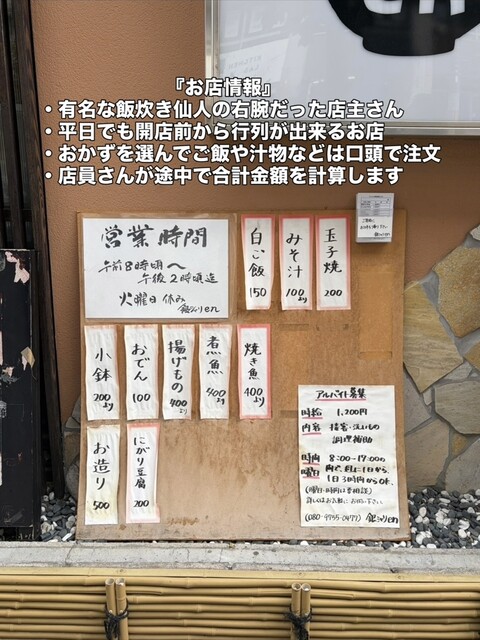 『お店情報』
・有名な飯炊き仙人の右腕だった店主さん
・平日でも開店前から行列が出来るお店
・おかずを選んでご飯や汁物などは口頭で注文
・店員さんが途中で合計金額を計算します
営業時間
午前8時頃〜
午後2時頃迄
火曜日休み
銀シャリen
白ご飯
150
みそ汁
100より
玉子焼
200
小鉢
200より
おでん
100
揚げもの
400より
煮魚
400より
焼き魚
400より
お造り
500
にがり豆腐
200
アルバイト募集
時給 1,200円
内容 接客・洗いもの
調理補助
時間 8:00〜17:00
曜日 内で、週1日から、
1日3時間からOK、
(曜日・時間は要相談)
詳しくはお気軽にお問い下さい
銀シャリen